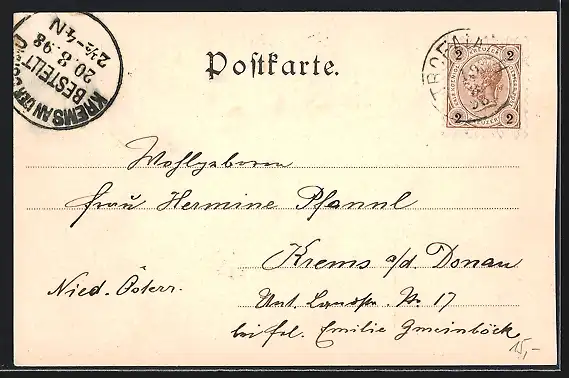 KREMS AN DER DONAU
BESTELLT
20.8.98
2½-4N
Postkarte.
TROFAIA
2 KREUZER 2
2 KREUZER 2
Wohlgeboren
Frau Hermine Pfannl
Krems a/d. Donau
Nied. Österr.
Unt. Landstr. Nr. 17
bei Frl. Emilie Gmeinböck
15,-